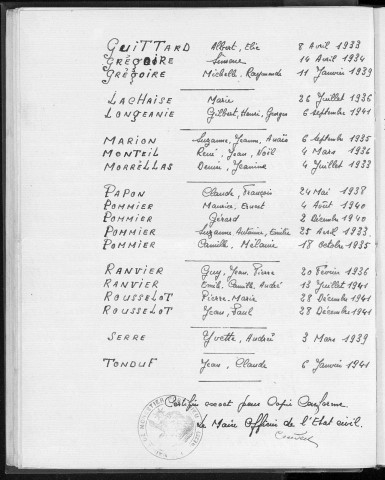 GUITTARD Albert, Elie 8 Avril 1933
GRÉGOIRE Simone 14 Avril 1934
GRÉGOIRE Michelle, Raymonde 11 Janvier 1939
LACHAISE Marie 26 Juillet 1936
LONGEANIE Gilbert, Henri, Georges 6 Septembre 1941
MARION Suzanne, Jeanne, Anaïs 6 Septembre 1935
MONTEIL René, Jean, Noël 4 Mars 1936
MORRELLAS Denise, Jeanine 4 Juillet 1933
PAPON Claude, François 24 Mai 1938
POMMIER Maurice, Ernest 4 Août 1940
POMMIER Gérard 2 Décembre 1940
POMMIER Suzanne, Antoinine, Emilie 25 Avril 1933
POMMIER Camille, Mélanie 18 Octobre 1935
RANVIER Guy, Jean, Pierre 20 Février 1936
RANVIER Emile, Camille, André 13 Juillet 1941
ROUSSELOT Pierre, Marie 28 Décembre 1941
ROUSSELOT Jean, Paul 28 Décembre 1941
SERRE Yvette, Andrée 3 Mars 1939
TONDUF Jean, Claude 6 Janvier 1941
Certifié exact pour Copie Conforme
Le Maire Officier de l'Etat civil.